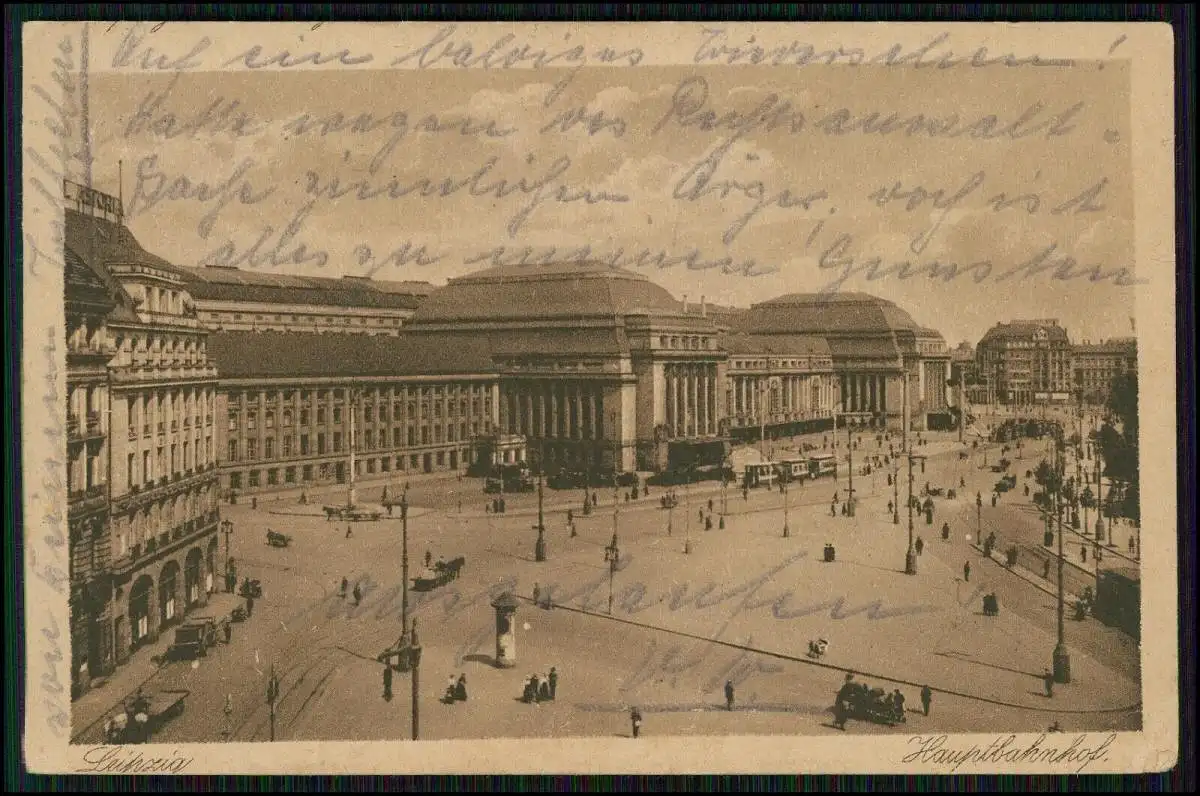 Auf ein baldiges Wiedersehen!
Hatte wegen der Rechtsanwalt-
Sache ziemlichen Ärger, doch ist
alles zu meinen Gunsten
ausgelaufen
Leipzig
Hauptbahnhof.